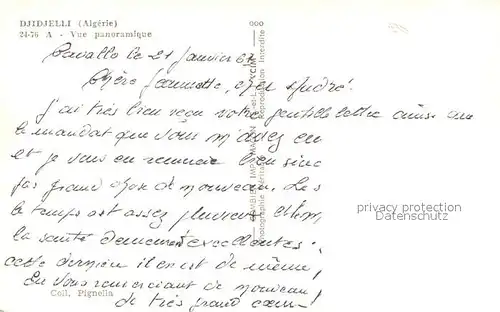 DJIDJELLI (Algérie)
24-76 A - Vue panoramique
Cavallo le 21 Janvier 61
Chère Jeannette, cher André.
J'ai très bien reçu votre gentille lettre ainsi que
le mandat que vous m'avez en
et je vous en remercie bien sinc
pas grand chose de nouveau. Les
le temps est assez pluvieux et
la santé demeure excellentes.
cette dernière il en est de même,
En vous remerciant de nouveau
Coll. Pignella
de très grand cœur
Reproduction Interdite
privacy protection
Datenschutz